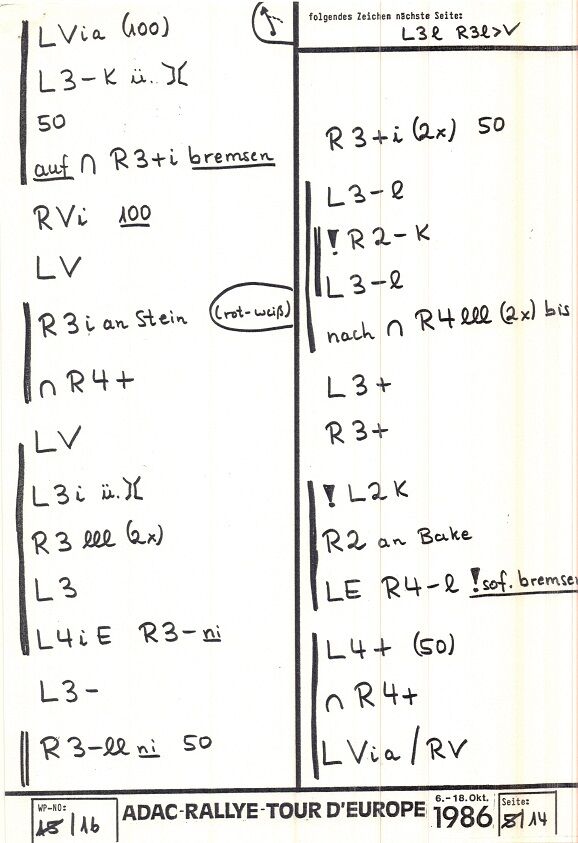 LVia (100)
L3-K ü. )(
50
auf ∩ R3+i bremsen
RVi 100
LV
R3i an Stein (rot-weiß)
∩ R4+
LV
L3i ü. )(
R3 lll (2x)
L3
L4iE R3-ni
L3-
R3-ll ni 50
folgendes Zeichen nächste Seite:
L3l R3l>V
R3+i (2x) 50
L3-l
! R2-K
L3-l
nach ∩ R4 lll (2x) bis
L3+
R3+
! L2K
R2 an Bake
LE R4-l ! sof. bremsen
L4+ (50)
∩ R4+
LVia/RV
WP-NO:
15/16
ADAC-RALLYE-TOUR D'EUROPE
6.-18. Okt.
1986
Seite:
8/14